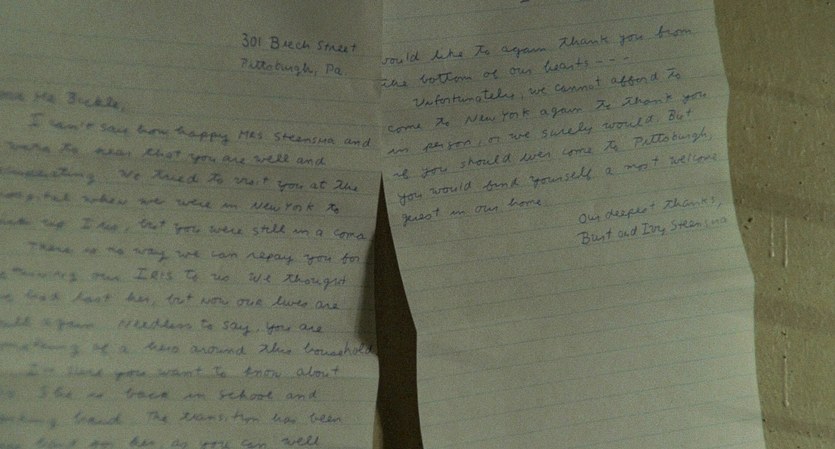 301 Beech Street
Pittsburgh, Pa.
Mr. Bickle,
I can't say how happy Mrs Steensma and
were to hear that you are well and
We tried to visit you at the
when we were in New York to
up Iris, but you were still in a coma
There is no way we can repay you for
returning our IRIS to us. We thought
had lost her, but now our lives are
again. Needless to say, you are
something of a hero around this household
I'm sure you want to know about
She is back in school and
hard. The transition has been
hard on her, as you can well
would like to again thank you from
the bottom of our hearts - - -
Unfortunately, we cannot afford to
come to New York again to thank you
in person, or we surely would. But
if you should ever come to Pittsburgh,
you would find yourself a most welcome
guest in our home.
Our deepest thanks,
Burt and Ivy Steensma